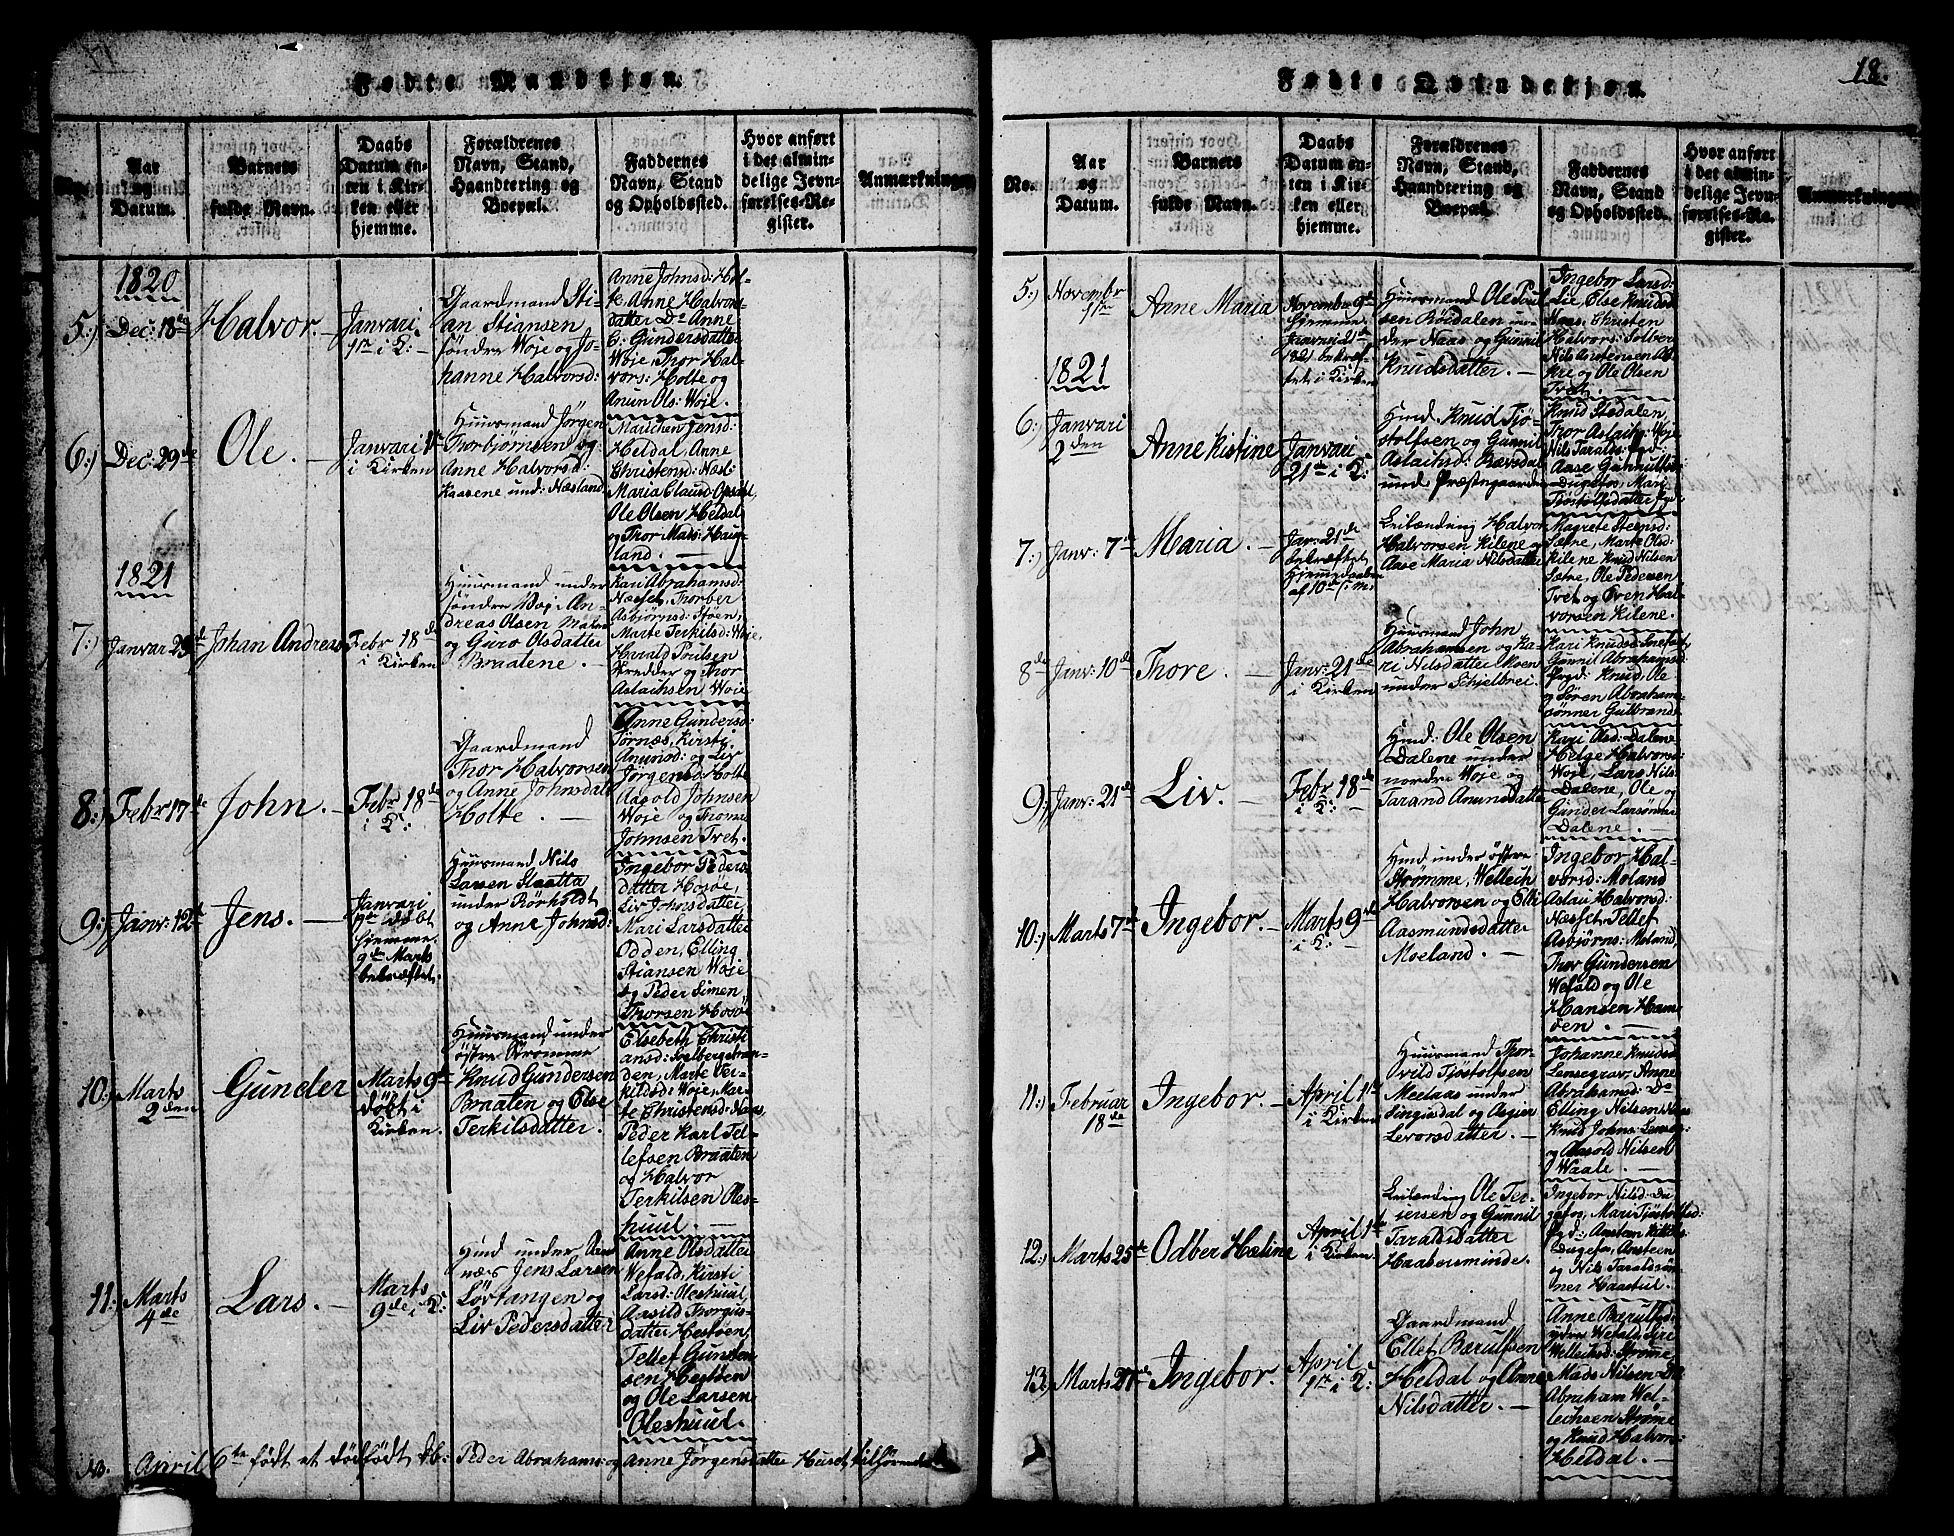 17
Fødte Mandkjøn.
Aar og Datum.
Barnets fulde Navn.
Daabs Datum enten i Kirken eller hjemme.
Forældrenes Navn, Stand, Haandtering og Boepæl.
Faddernes Navn, Stand og Opholdssted.
Hvor anført i det almindelige Jevnførelses-Register.
Anmærkninger
1820
5:) Dec: 18de
Halvor. —
Janvari
1ste i K: —
Gaardmand Sti-
an Stiansen
søndre Woje og Jo-
hanne Halvorsd:
Anne Johnsd: Hol-
Anne Halvors
datter Do Anne
Gundersdatter
Woje, Thor Hal-
vors: Holte og
Anun Ols: Woje.
6:) Dec: 29de
Ole. —
Janvari 1ste
i Kirken
Huusmand Jørgen
Thorbjørnsen og
Anne Halvorsd:
Kaasene und: Næsland
Jensd:
Heldal, Anne
Christensd: Næsl:
Maria Clausd: Opsahl
Ole Olsen Heldal
og Thor Mads: Haug-
land. —
1821
7:) Janvar 23de
Johan Andreas
Febr 18de
i Kirken
Huusmand under
søndre Woje An-
dreas Olsen
og Guro Olsdatter
Braatene. —
Kari Abrahamsd:
Næsset, Thorber
Asbjørnsd: Støen,
Marte Terkilsd: Woje,
Harald Poulsen
Skredder og Thor
Aslachsen Woje
8:) Febr 17de
John. —
Febr 18de
i K:
Gaardmand
Thor Halvorsen
og Anne Johnsdatt
Holte. —
Anne Gundersd:
Tørnæs, Kirsti
Anunsd: og Liv
Jørgensd: Holte
Aasold Johnsen
Woje og Thom
Johnsen Tvet.
9:) Janv: 12te
Jens. —
Janvari
hjemme.
9de Marts
bekræftet.
Huusmand Nils
Larsen Slaatta
under Rørholdt
og Anne Johnsd:
Ingebor Peders
datter Hosøe,
Liv Johnsdatter
Mari Larsdatter
Odden, Elling
Stiansen Woje
og Peder Simen
Thorsen Hosøe
10:) Marts
2den
Gunder
Marts 9de
døbt i
Kirken.
Huusmand under
østre Strømme
Knud Gundersen
Braaten og Else
Terkilsdatter.
Elsebeth Christi
ansd:
den, Marte Ter-
kildsd: Woje, Mar-
te Christensd: Naas,
Peder Karl Tel-
lefsen Braaten
og Halvor
Terkilsen Oles-
huul. —
11:) Marts
4de
Lars. —
Marts
9de i K:
Hmd under
næs Jens Larsen
Lørtangen og
Liv Pedersdatter
Anne Olsdatter
Wefald, Kirsti
Larsd: Oleshuul,
Aasild Thorgus-
datter Hestøen,
Tellef Gunders
sen Hestøen
og Ole Larsen
Oleshuul.
NB. April 6te født et dødfødt Db: Peder Abrahams: og Anne Jørgensdatter Huset tilhørende
18.
Fødte Qvindekjøn.
No.
Aar og Datum.
Barnets fulde Navn.
Daabs Datum enten i Kirken eller hjemme.
Forældrenes Navn, Stand, Haandtering og Boepæl.
Faddernes Navn, Stand og Opholdssted.
Hvor anført i det almindelige Jevnførelses-Register.
Anmærkninger
5:) Novembr
Anne Maria
Novembr 9de
hjemme
Janvri 21de
1821 bekræf-
tet i Kirken
Huusmand Ole Poul
sen Bøidalen un-
der Naas og Gunnil
Knudsdatter. —
Ingebor Larsd:
Lie, Else Knudsd:
Naas, Christen
Halvors: Solber
Nils Anstensen
og Ole Olsen
Tvet. —
1821
6:) Janvari
2den
Anne Kistine
Janvari
21de i K:
Hmd. Knud Tjø-
stolfsen og Gunnil
Aslachsd: Bævsdal
und Præstegaarden
Knud Stedalen,
Thor Aslachs: Woje
Nils Taralds:
Aase Gunnulfsd:
Dugefos, Mari
Tjøstolfsdatter
7:) Janv: 7de
Maria. —
Jan: 21de
bekræftet
hjemmedaaben
af 10de s: m:
Leilænding Halvor
Halvorsen Kilene og
Aase Maria Nilsdatter
Magrete Steensd:
Sætre, Marte Olsd:
Kilene Knud Nilsen
Sætre, Ole Pedersen
Tvet og Even Hal-
vorsen Kilene.
8de Janv: 10de
Thore. —
Janv: 21de
i Kirken
Huusmand John
Abrahamsen og Ka-
ri Nilsdatter Moen
under Schjelbrei.
Kari Knudsd:
Gunnil Abrahamsd:
Knud, Ole
og Søren Abraham-
sønner Gulbrand
9:) Janv: 21de
Liv. —
Febr 18de
i K:
Hmd: Ole Olsen
Dalene under
nordre Woje og
Tarand Anunsdatter
Kari Olsd: Dalene
Helge Halvorsd:
Woje, Lars Nils
Dalene, Ole og
Gunder Larsønner
Dalene. —
10:) Marts 7de
Ingebor. —
Marts 9de
i K: —
Hmd under østre
Strømme, Wellech
Halvorsen og Elli
Aasmundsdatter
Moeland. —
Ingebor Hal-
vorsd: Moland
Aslau Halvorsd:
Næsset, Tellef
Asbjørns: Moland,
Thor Gundersen
Wefald og Ole
Hansen Ham-
øen. —
11:) Februar
18de
Ingebor. —
April 1ste
i Kirken
Huusmand Thor-
vild Tjøstolfsen
Meelaas under
Lingisdal og Asgier
Levorsdatter. —
Johanne Knudsd:
Lensegrav, Anne
Abrahamsd: Do
Elling Nilsen
Knud Johns: Lenseg:
og Aasold Nilsen
Waale. —
12:) Marts 25de
Odber Heline
April 1ste
i Kirken.
Leilænding Ole Ter-
jersen og Gunnil
Taraldsdatter
Haabersminde.
Ingebor Nilsd: Du
gefos, Mari Tjøstolfsd:
Dugefos, Ansteen
og Nils Taraldsøn-
ner Haasuul. —
13. Marts 27de
Ingebor.
April
1ste i K:
Gaardmand
Ellef Bærulfsen
Heldal og Anne
Nilsdatter. —
Anne Bærulfsd:
Wefald, Sire
Wellechsd: Strømme
Mads Nilsen Do
Abraham Wel-
lechsen Strømme
og Knud Halvors:
Heldal. —